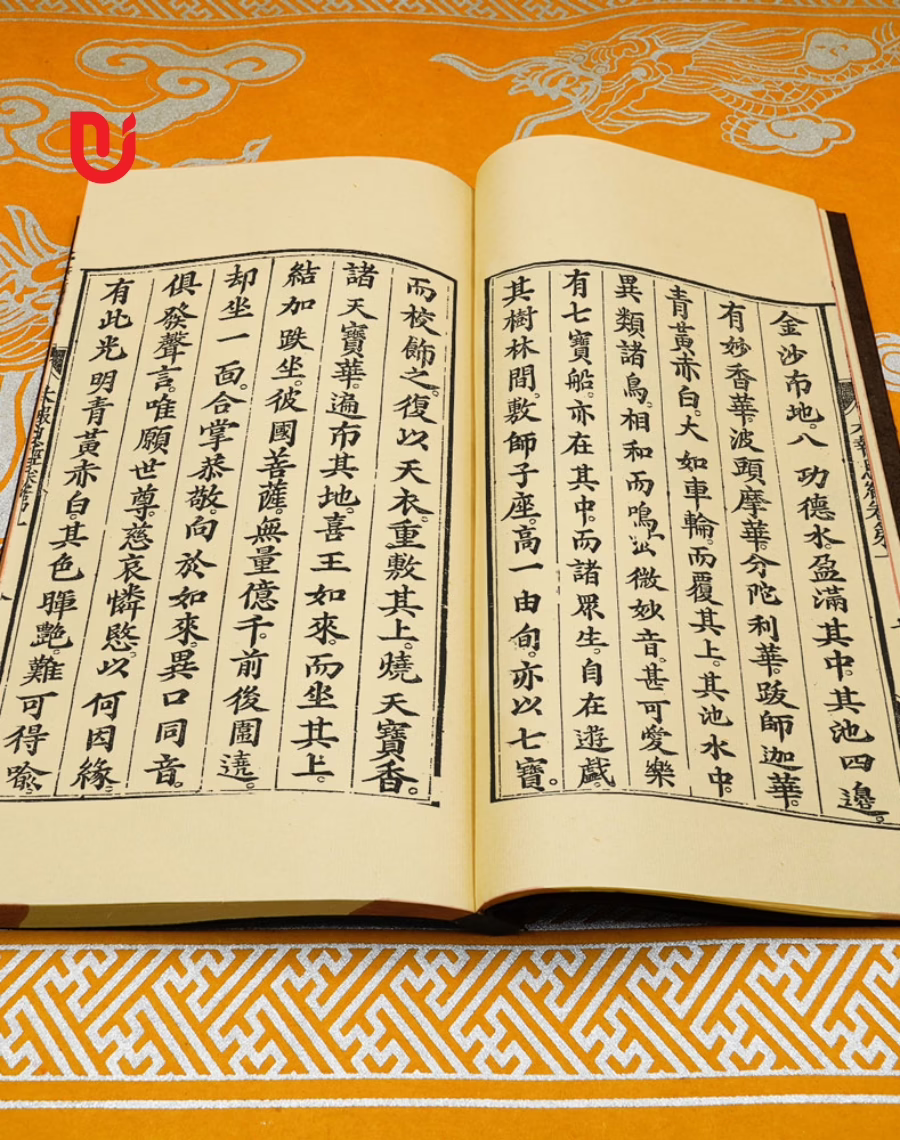 金沙布地。八功德水。盈滿其中。其池四邊。
有妙香華。波頭摩華。分陀利華。跋師迦華。
青黃赤白。大如車輪。而覆其上。其池水中。
異類諸鳥。相和而鳴。出微妙音。甚可愛樂
有七寶船。亦在其中。而諸眾生。自在遊戲。
其樹林間。敷師子座。高一由旬。亦以七寶。
而校飾之。復以天衣。重敷其上。燒天寶香。
諸天寶華。遍布其地。喜王如來。而坐其上。
結加趺坐。彼國菩薩。無量億千。前後圍遶。
却坐一面。合掌恭敬。向於如來。異口同音。
俱發聲言。唯願世尊慈哀憐愍。以何因緣。
有此光明青黃赤白。其色暉艷。難可得喻。